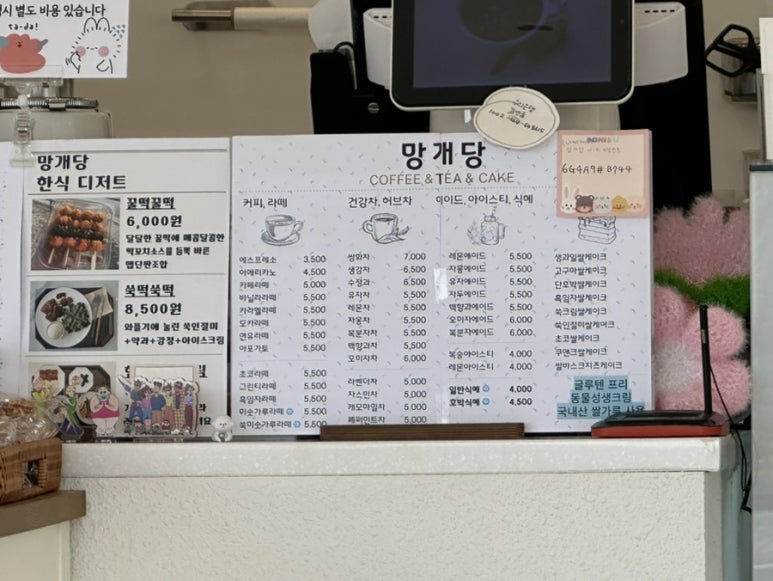 시 별도 비용 있습니다
망개당
한식 디저트
꿀떡꿀떡
6,000원
달달한 꿀떡에 매콤달콤한
떡꼬치소스를 듬뿍 바른
맵단짠조합
쑥떡쑥떡
8,500원
와플기에 눌린 쑥인절미
+약과+강정+아이스크림
망개당
COFFEE & TEA & CAKE
커피, 라떼
에스프레소 3,500
아메리카노 4,500
카페라떼 5,000
바닐라라떼 5,500
카라멜라떼 5,500
모카라떼 5,500
연유라떼 5,500
아포가토 5,500
초코라떼 5,500
그린티라떼 5,500
흑임자라떼 5,500
미숫가루라떼 5,500
쑥미숫가루라떼 5,500
건강차, 허브차
쌍화차 7,000
생강차 6,500
수정과 6,500
유자차 5,500
레몬차 5,500
자몽차 5,500
복분자차 5,500
백향과차 5,500
오미자차 6,000
라벤더차 5,000
자스민차 5,000
캐모마일차 5,000
페퍼민트차 5,000
에이드, 아이스티, 식혜
레몬에이드 5,500
자몽에이드 5,500
유자에이드 5,500
자두에이드 5,500
백향과에이드 5,500
오미자에이드 6,000
복분자에이드 6,000
복숭아아이스티 4,000
레몬아이스티 4,000
일반식혜 4,000
호박식혜 4,500
생과일쌀케이크
고구마쌀케이크
단호박쌀케이크
흑임자쌀케이크
쑥크림쌀케이크
쑥인절미쌀케이크
초코쌀케이크
쿠앤크쌀케이크
쌀바스크치즈케이크
글루텐 프리
동물성생크림
국내산 쌀가루 사용
6G4A9# B744